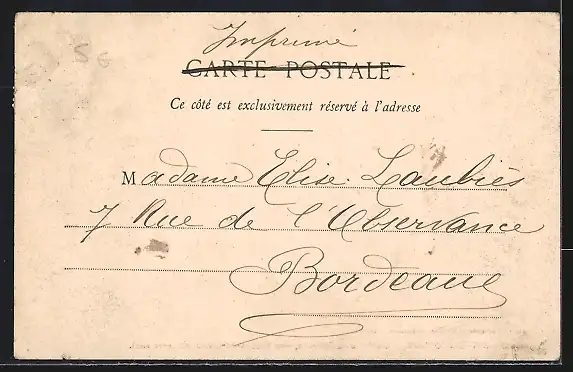 Imprimé
CARTE POSTALE
Ce côté est exclusivement réservé à l'adresse
Madame Elise Laubiès
7 Rue de l'Observance
Bordeaux